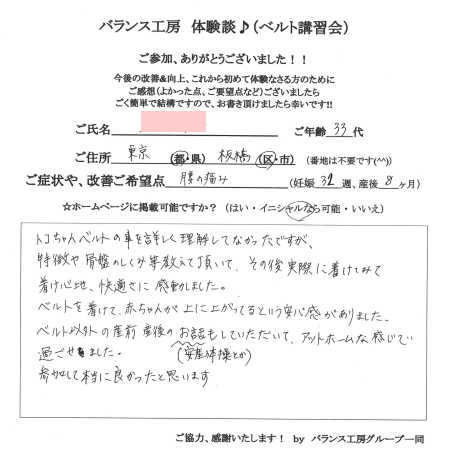 バランス工房 体験談♪(ベルト講習会)
ご参加、ありがとうございました!!
今後の改善&向上、これから初めて体験なさる方のために
ご感想(よかった点、ご要望点など)ございましたら
ごく簡単で結構ですので、お書き頂けましたら幸いです!!
ご氏名 ご年齢 33 代
ご住所 東京 (都・県) 板橋 (区・市) (番地は不要です(^^))
ご症状や、改善ご希望点 腰の痛み (妊娠 32 週、産後 8 ヶ月)
☆ホームページに掲載可能ですか? (はい・イニシャルなら可能・いいえ)
トコちゃんベルトの事を詳しく理解してなかったですが、
特徴や骨盤のしくみ等教えて頂いて、その後実際に着けてみて
着け心地、快適さに感動しました。
ベルトを着けて、赤ちゃんが上に上がってるという安心感がありました。
ベルト以外の産前産後のお話もしていただいて、アットホームな感じで
過ごせました。 (安産体操とか)
参加して本当に良かったと思います
ご協力、感謝いたします! by バランス工房グループ一同